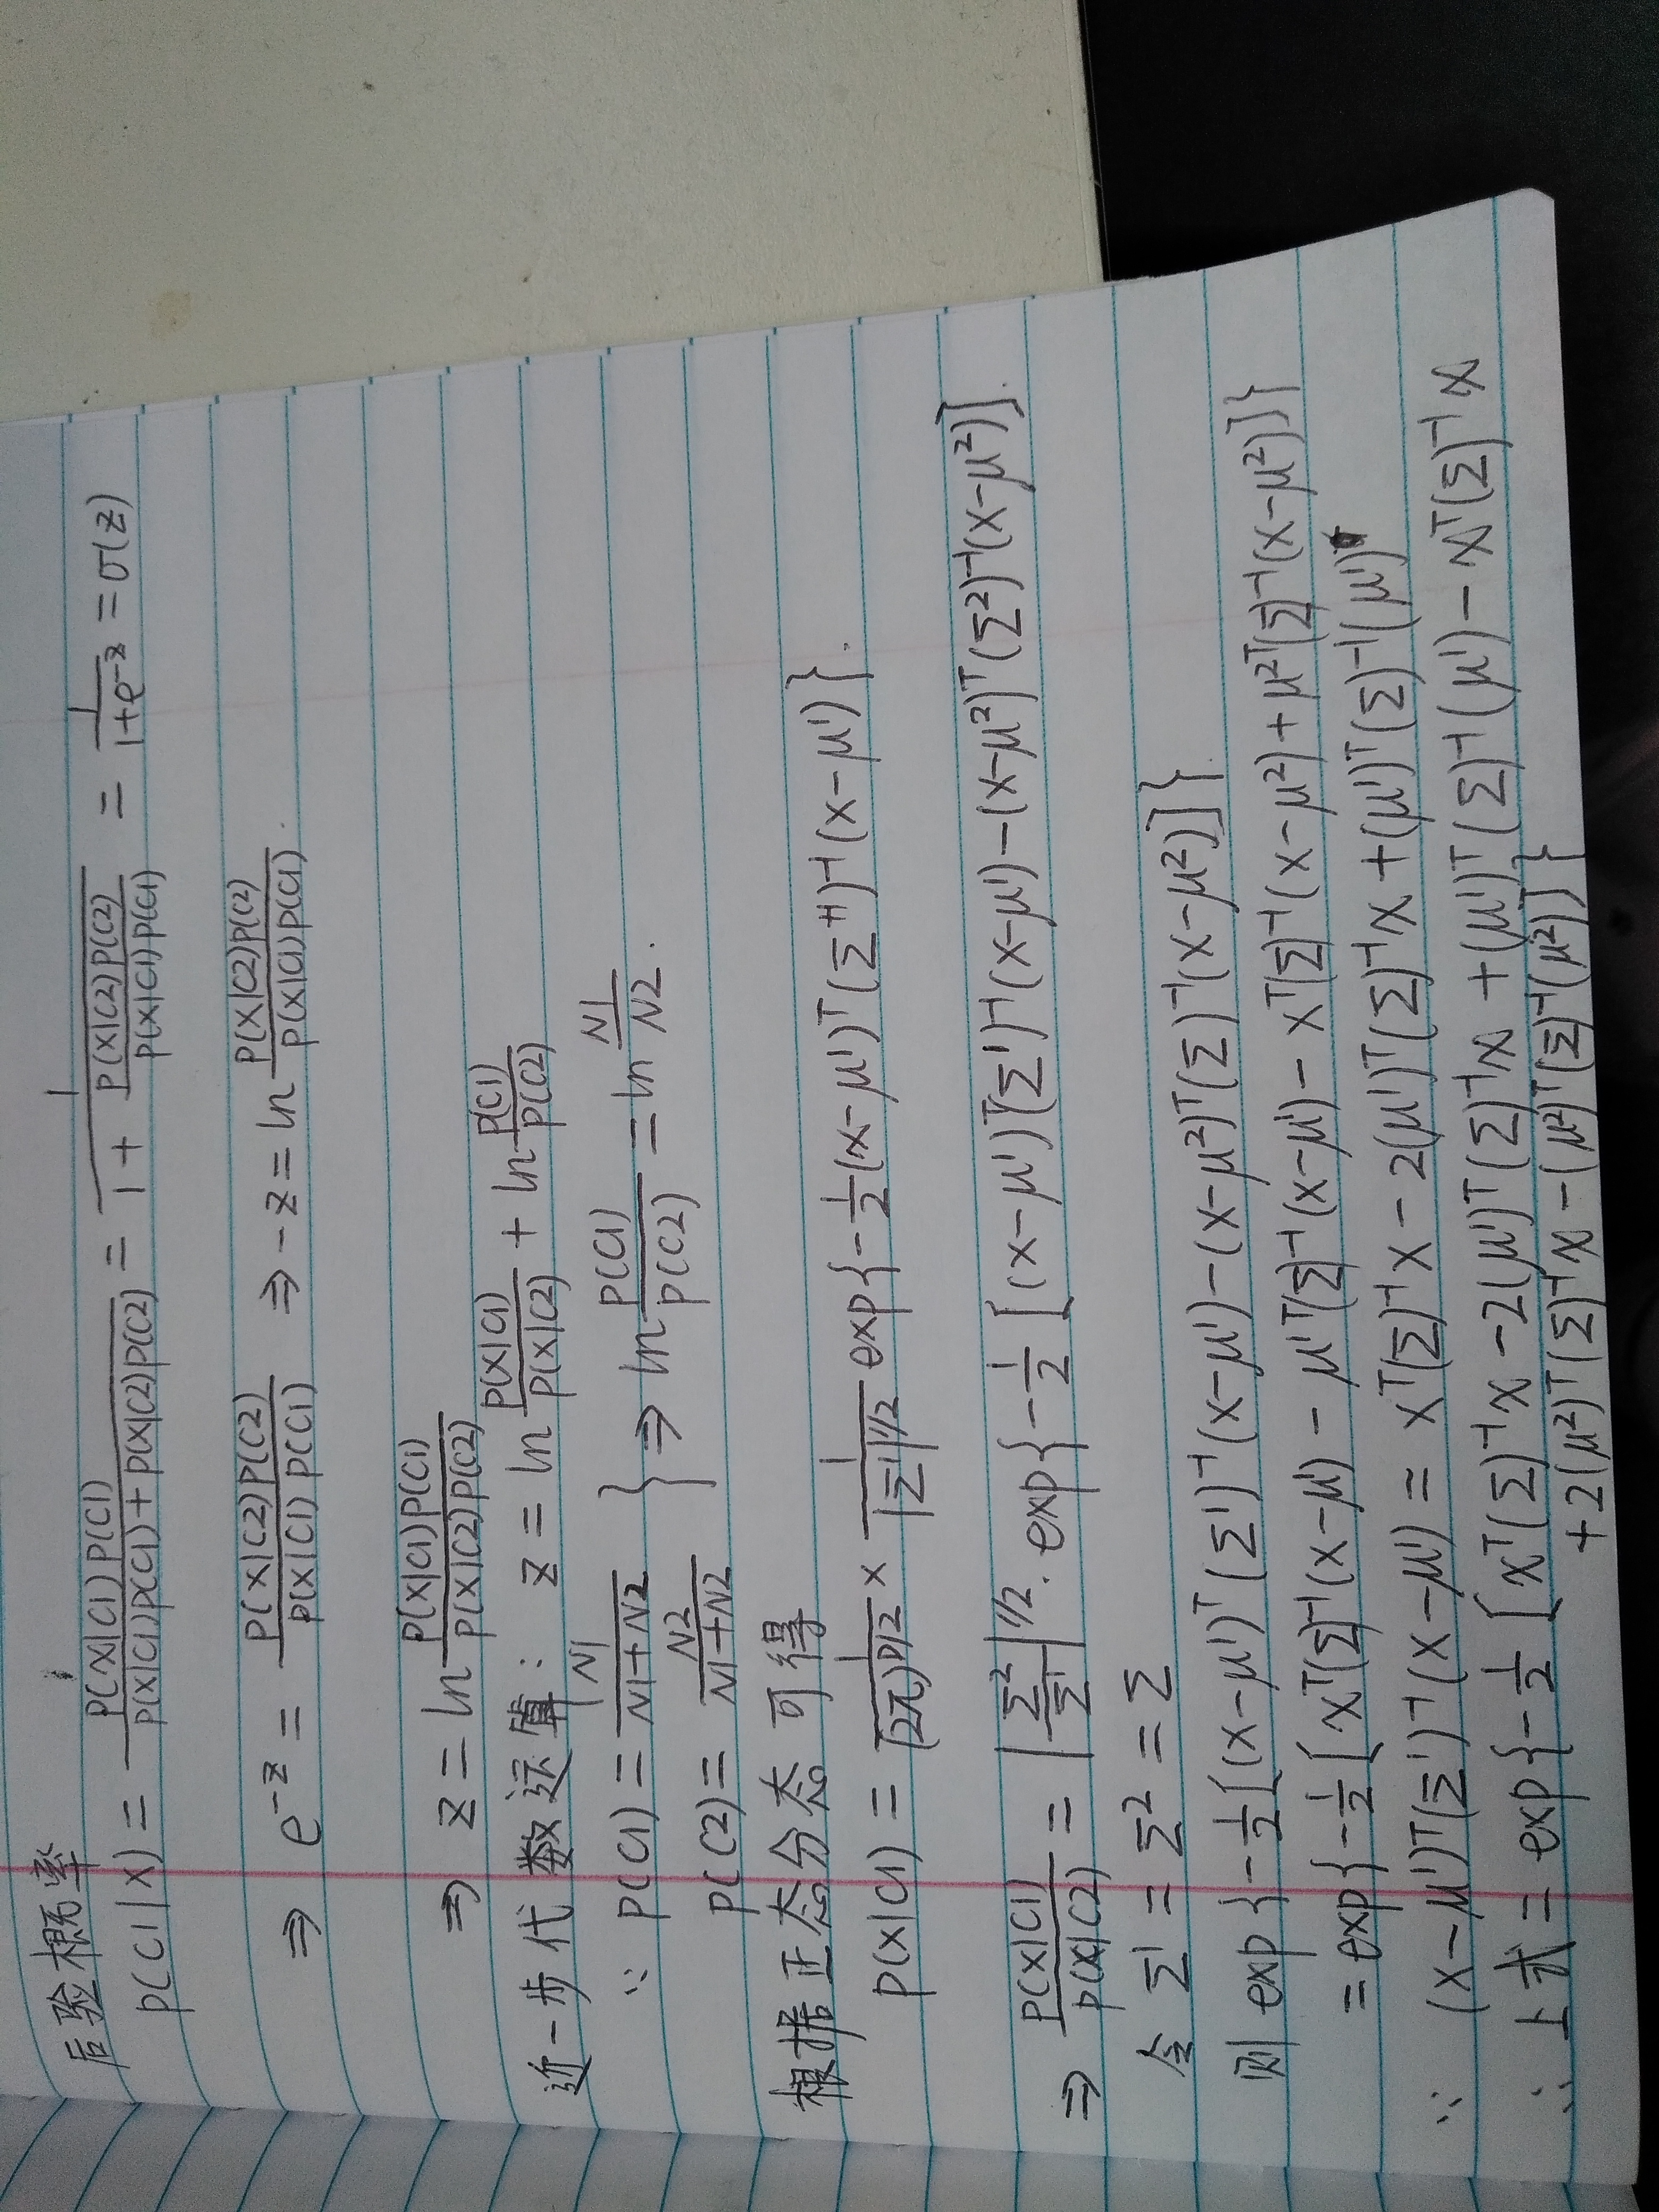 后验概率
P(C1|X) = P(X|C1)P(C1) / P(X|C1)P(C1)+P(X|C2)P(C2) = 1 / 1 + P(X|C2)P(C2) / P(X|C1)P(C1) = 1 / 1+e^-z = σ(z)
⇒ e^-z = P(X|C2)P(C2) / P(X|C1)P(C1) ⇒ -z = ln P(X|C2)P(C2) / P(X|C1)P(C1).
⇒ z = ln P(X|C1)P(C1) / P(X|C2)P(C2)
近一步代数运算: z = ln P(X|C1) / P(X|C2) + ln P(C1) / P(C2)
∵ P(C1) = N1 / N1+N2 } ⇒ ln P(C1) / P(C2) = ln N1 / N2.
P(C2) = N2 / N1+N2
根据正态分态可得
P(X|C1) = 1 / (2π)^D/2 × 1 / |Σ¹|^1/2 exp{-1/2(x-μ¹)ᵀ(Σ¹)⁻¹(x-μ¹)}.
⇒ P(X|C1) / P(X|C2) = |Σ² / Σ¹|^1/2 · exp{-1/2 [(x-μ¹)ᵀ(Σ¹)⁻¹(x-μ¹)-(x-μ²)ᵀ(Σ²)⁻¹(x-μ²)].
令 Σ¹ = Σ² = Σ
则 exp{-1/2[(x-μ¹)ᵀ(Σ¹)⁻¹(x-μ¹)-(x-μ²)ᵀ(Σ)⁻¹(x-μ²)]}.
= exp{-1/2[xᵀ(Σ)⁻¹(x-μ¹) - μ¹ᵀ(Σ)⁻¹(x-μ¹) - xᵀ(Σ)⁻¹(x-μ²) + μ²ᵀ(Σ)⁻¹(x-μ²)]}
∵ (x-μ¹)ᵀ(Σ¹)⁻¹(x-μ¹) = xᵀ(Σ)⁻¹x - 2(μ¹)ᵀ(Σ)⁻¹x + (μ¹)ᵀ(Σ)⁻¹(μ¹)
∴ 上式 = exp{-1/2 [xᵀ(Σ)⁻¹x - 2(μ¹)ᵀ(Σ)⁻¹x + (μ¹)ᵀ(Σ)⁻¹(μ¹) - xᵀ(Σ)⁻¹x
+ 2(μ²)ᵀ(Σ)⁻¹x - (μ²)ᵀ(Σ)⁻¹(μ²)]}